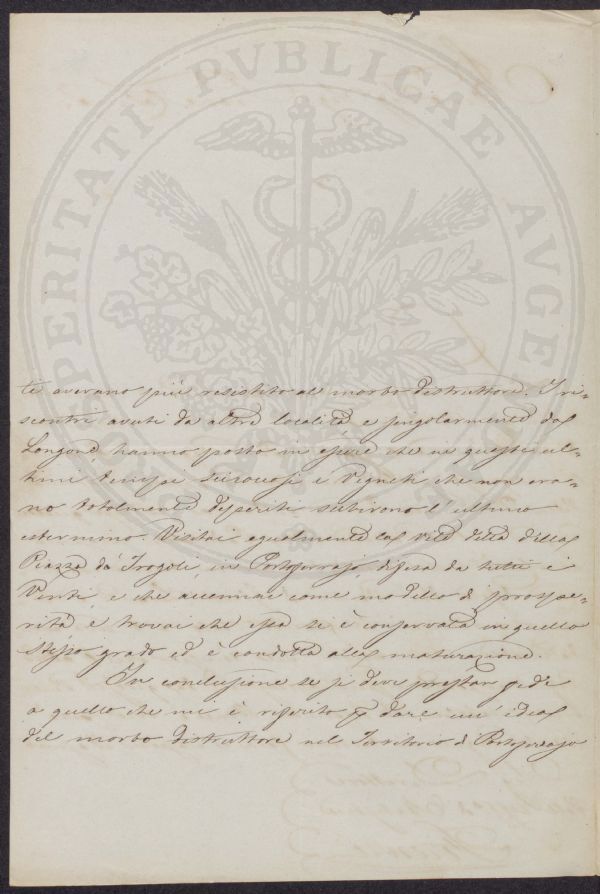 PROSPERITATI PVBLICAE AVGENDAE
te avevano più resistito al morbo distruttore. I ri=
scontri avuti da altre località e singolarmente da
Longone hanno posto in essere che in questi ul=
timi tempi sciroccosi i Vigneti che non era=
no totalmente deperiti subirono l'ultimo
estermino. Visitai egualmente la vite detta della
Piazza da Trogoli in Portoferrajo difesa da tutti i
Venti, e che accennai come modello di prospe=
rità e trovai che essa si è conservata in quello
stesso grado ed è condotta alla maturazione.
In conclusione se si deve prestar fede
a quello che mi è riferito p dare un'idea
del morbo distruttore nel Territorio di Portoferrajo